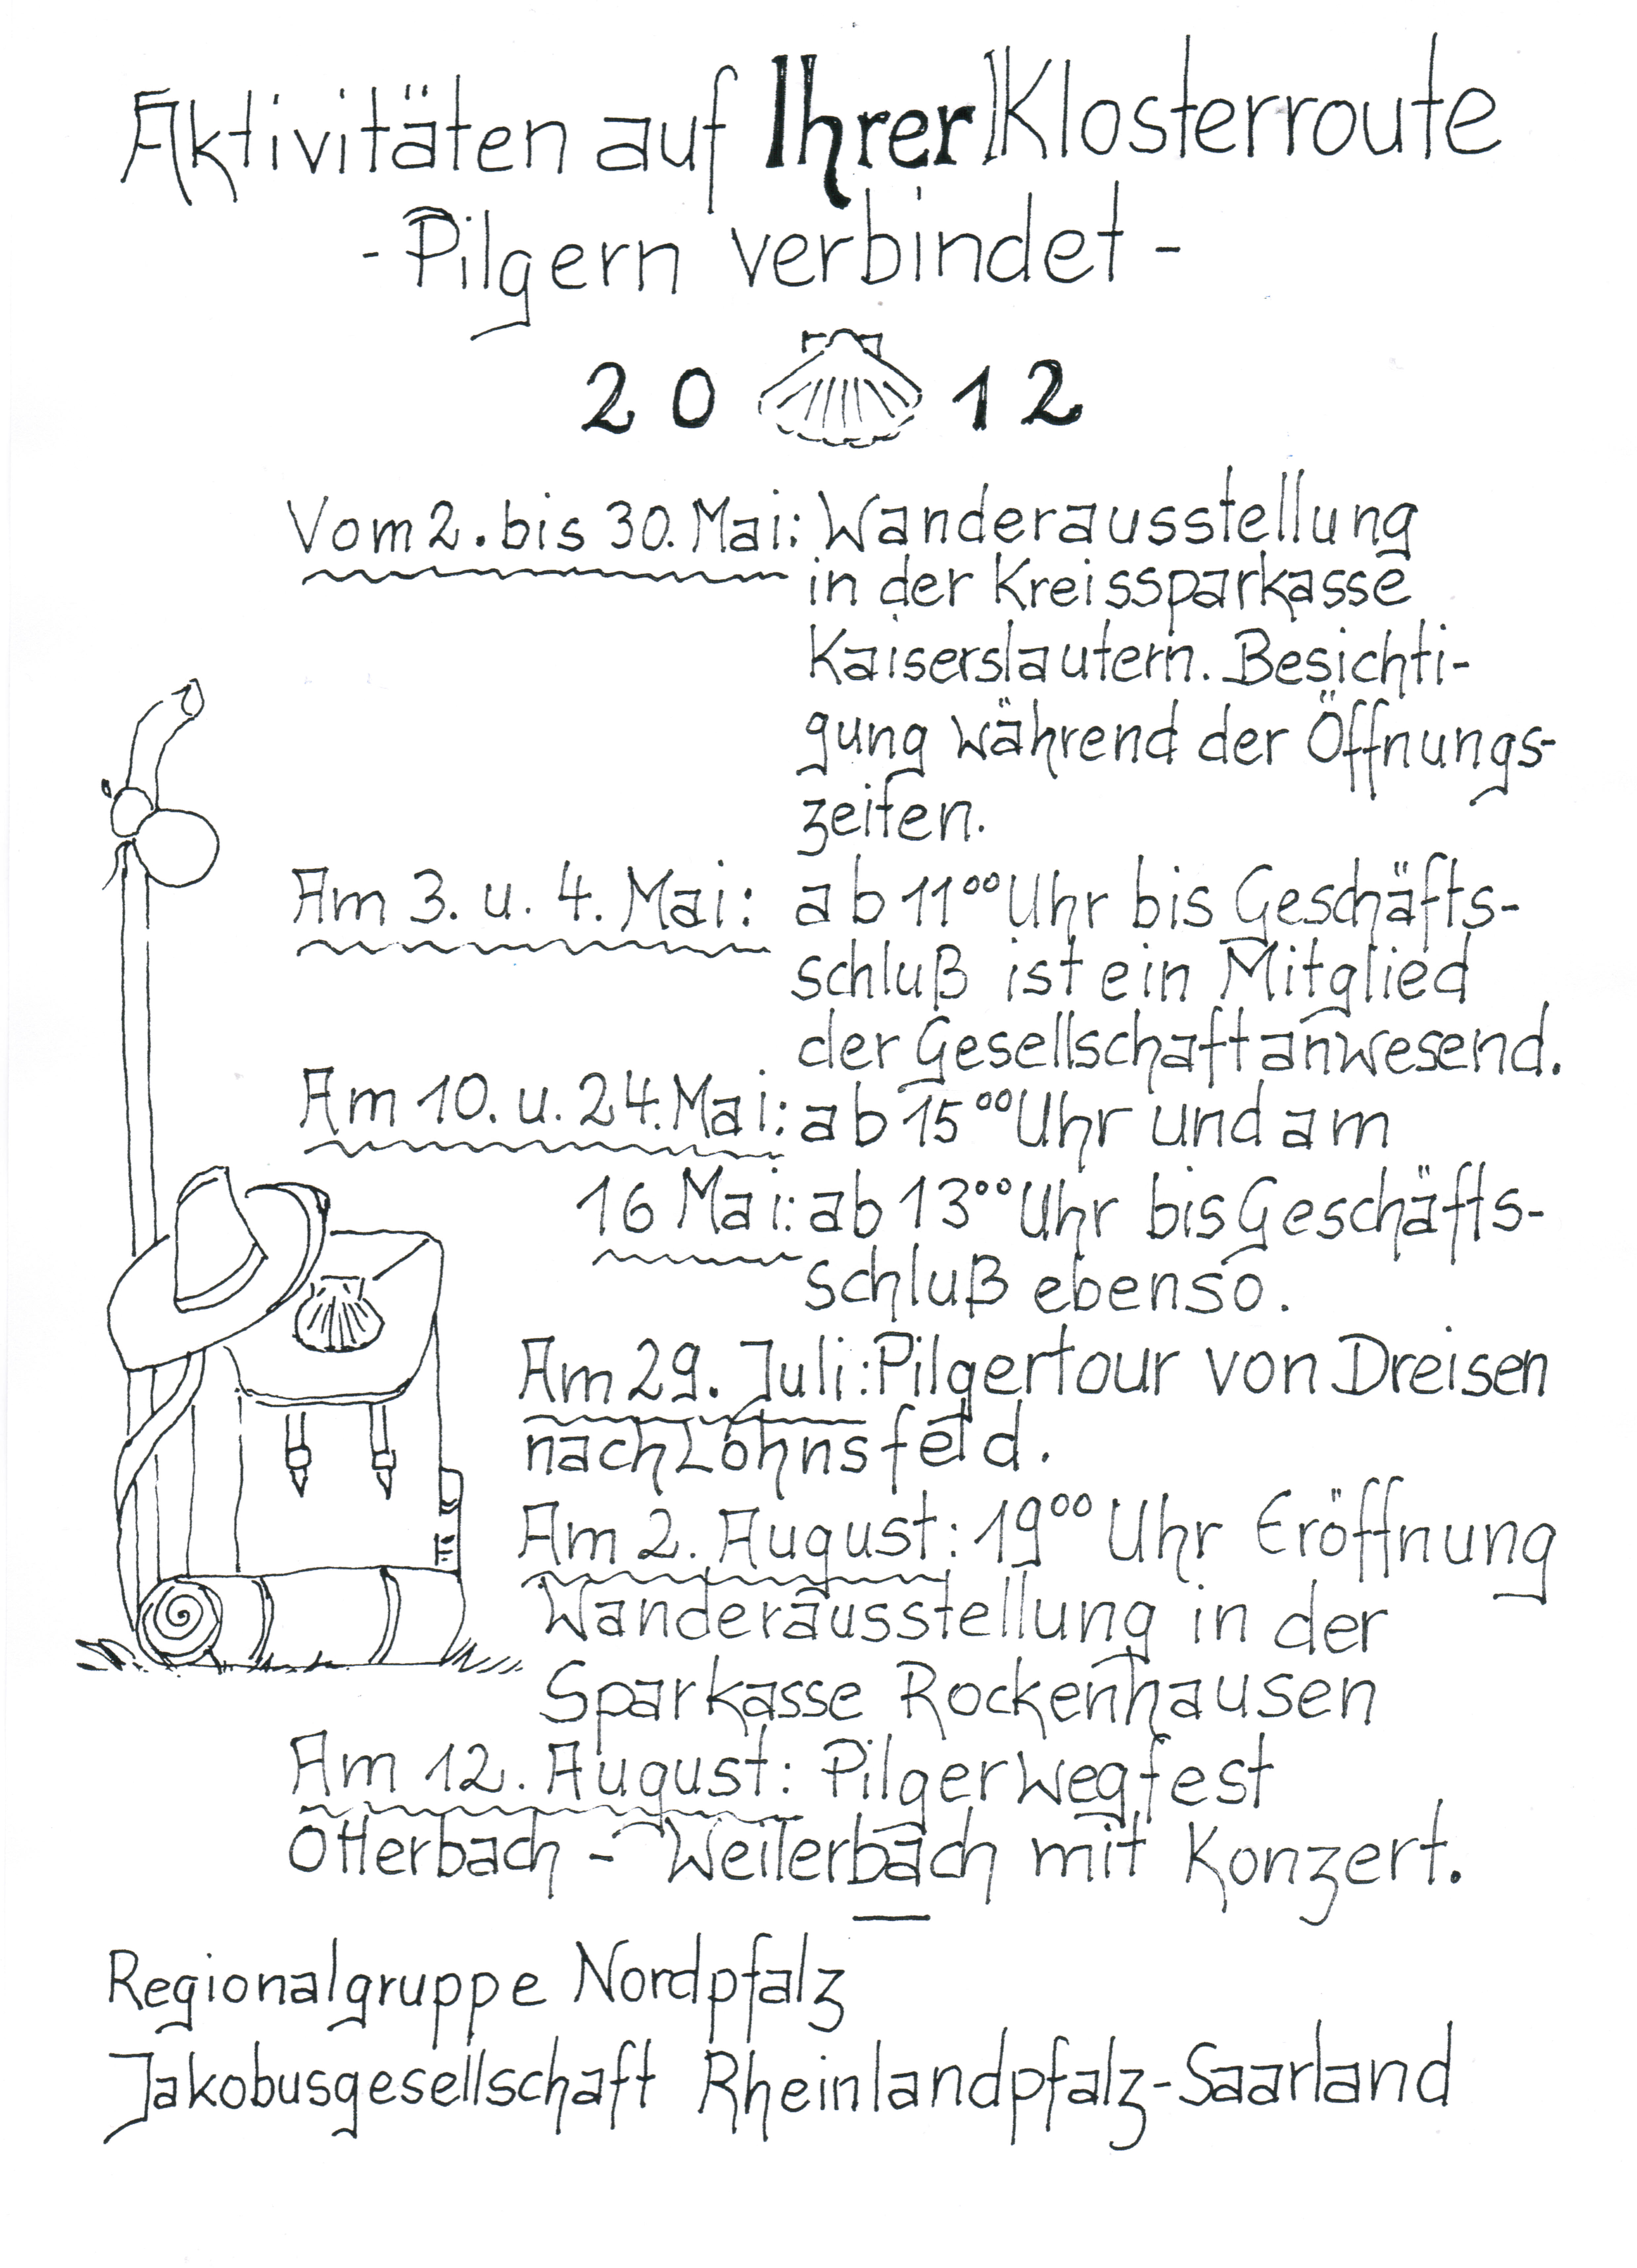 Aktivitäten auf Ihrer Klosterroute
- Pilgern verbindet -
2012
Vom 2. bis 30. Mai: Wanderausstellung
in der Kreissparkasse
Kaiserslautern. Besichti-
gung während der Öffnungs-
zeiten.
Am 3. u. 4. Mai: ab 11⁰⁰ Uhr bis Geschäfts-
schluß ist ein Mitglied
der Gesellschaft anwesend.
Am 10. u. 24. Mai: ab 15⁰⁰ Uhr und am
16 Mai: ab 13⁰⁰ Uhr bis Geschäfts-
schluß ebenso.
Am 29. Juli: Pilgertour von Dreisen
nach Lohnsfeld.
Am 2. August: 19⁰⁰ Uhr Eröffnung
Wanderausstellung in der
Sparkasse Rockenhausen
Am 12. August: Pilgerwegfest
Otterbach - Weilerbach mit Konzert.
Regionalgruppe Nordpfalz
Jakobusgesellschaft Rheinlandpfalz-Saarland